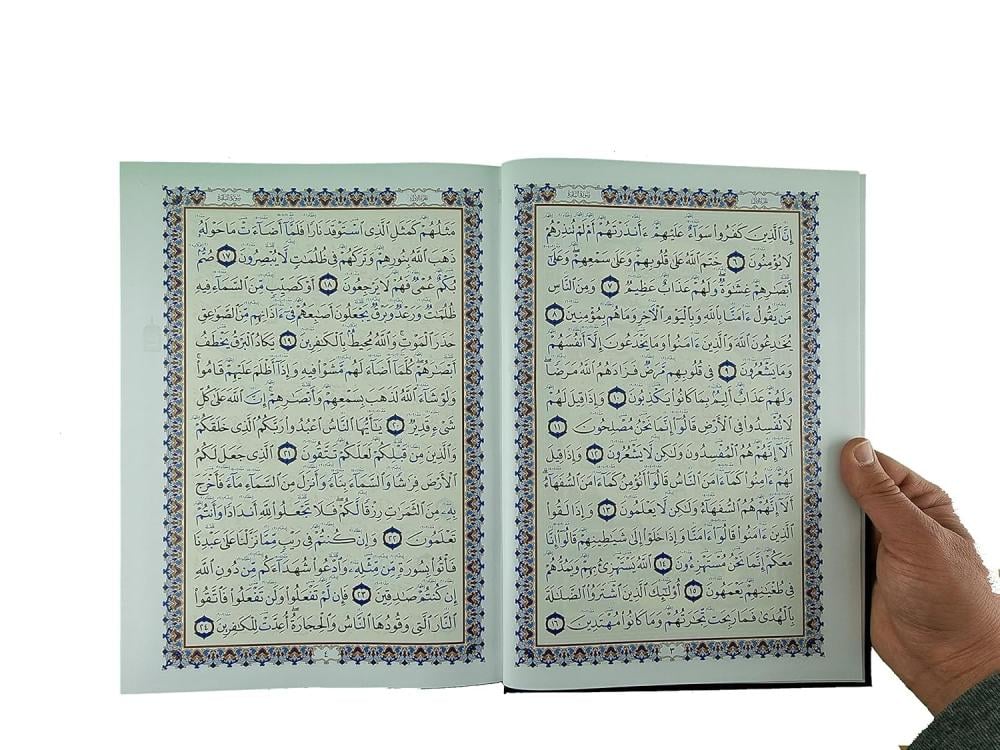 الجزء الأول سورة البقرة
إِنَّ ٱلَّذِينَ كَفَرُوا۟ سَوَآءٌ عَلَيْهِمْ ءَأَنذَرْتَهُمْ أَمْ لَمْ تُنذِرْهُمْ
لَا يُؤْمِنُونَ ٦ خَتَمَ ٱللَّهُ عَلَىٰ قُلُوبِهِمْ وَعَلَىٰ سَمْعِهِمْ ۖ وَعَلَىٰٓ
أَبْصَٰرِهِمْ غِشَٰوَةٌ ۖ وَلَهُمْ عَذَابٌ عَظِيمٌ ٧ وَمِنَ ٱلنَّاسِ
مَن يَقُولُ ءَامَنَّا بِٱللَّهِ وَبِٱلْيَوْمِ ٱلْءَاخِرِ وَمَا هُم بِمُؤْمِنِينَ ٨
يُخَٰدِعُونَ ٱللَّهَ وَٱلَّذِينَ ءَامَنُوا۟ وَمَا يَخْدَعُونَ إِلَّآ أَنفُسَهُمْ
وَمَا يَشْعُرُونَ ٩ فِى قُلُوبِهِم مَّرَضٌ فَزَادَهُمُ ٱللَّهُ مَرَضًا ۖ
وَلَهُمْ عَذَابٌ أَلِيمٌۢ بِمَا كَانُوا۟ يَكْذِبُونَ ١٠ وَإِذَا قِيلَ لَهُمْ
لَا تُفْسِدُوا۟ فِى ٱلْأَرْضِ قَالُوٓا۟ إِنَّمَا نَحْنُ مُصْلِحُونَ ١١
أَلَآ إِنَّهُمْ هُمُ ٱلْمُفْسِدُونَ وَلَٰكِن لَّا يَشْعُرُونَ ١٢ وَإِذَا قِيلَ
لَهُمْ ءَامِنُوا۟ كَمَآ ءَامَنَ ٱلنَّاسُ قَالُوٓا۟ أَنُؤْمِنُ كَمَآ ءَامَنَ ٱلسُّفَهَآءُ ۗ
أَلَآ إِنَّهُمْ هُمُ ٱلسُّفَهَآءُ وَلَٰكِن لَّا يَعْلَمُونَ ١٣ وَإِذَا لَقُوا۟
ٱلَّذِينَ ءَامَنُوا۟ قَالُوٓا۟ ءَامَنَّا وَإِذَا خَلَوْا۟ إِلَىٰ شَيَٰطِينِهِمْ قَالُوٓا۟ إِنَّا
مَعَكُمْ إِنَّمَا نَحْنُ مُسْتَهْزِءُونَ ١٤ ٱللَّهُ يَسْتَهْزِئُ بِهِمْ وَيَمُدُّهُمْ
فِى طُغْيَٰنِهِمْ يَعْمَهُونَ ١٥ أُو۟لَٰٓئِكَ ٱلَّذِينَ ٱشْتَرَوُا۟ ٱلضَّلَٰلَةَ
بِٱلْهُدَىٰ فَمَا رَبِحَت تِّجَٰرَتُهُمْ وَمَا كَانُوا۟ مُهْتَدِينَ ١٦
٣
الجزء الأول سورة البقرة
مَثَلُهُمْ كَمَثَلِ ٱلَّذِى ٱسْتَوْقَدَ نَارًا فَلَمَّآ أَضَآءَتْ مَا حَوْلَهُۥ
ذَهَبَ ٱللَّهُ بِنُورِهِمْ وَتَرَكَهُمْ فِى ظُلُمَٰتٍ لَّا يُبْصِرُونَ ١٧ صُمٌّۢ
بُكْمٌ عُمْىٌ فَهُمْ لَا يَرْجِعُونَ ١٨ أَوْ كَصَيِّبٍ مِّنَ ٱلسَّمَآءِ فِيهِ
ظُلُمَٰتٌ وَرَعْدٌ وَبَرْقٌ يَجْعَلُونَ أَصَٰبِعَهُمْ فِىٓ ءَاذَانِهِم مِّنَ ٱلصَّوَٰعِقِ
حَذَرَ ٱلْمَوْتِ ۚ وَٱللَّهُ مُحِيطٌۢ بِٱلْكَٰفِرِينَ ١٩ يَكَادُ ٱلْبَرْقُ يَخْطَفُ
أَبْصَٰرَهُمْ ۖ كُلَّمَآ أَضَآءَ لَهُم مَّشَوْا۟ فِيهِ وَإِذَآ أَظْلَمَ عَلَيْهِمْ قَامُوا۟ ۚ
وَلَوْ شَآءَ ٱللَّهُ لَذَهَبَ بِسَمْعِهِمْ وَأَبْصَٰرِهِمْ ۚ إِنَّ ٱللَّهَ عَلَىٰ كُلِّ
شَىْءٍ قَدِيرٌ ٢٠ يَٰٓأَيُّهَا ٱلنَّاسُ ٱعْبُدُوا۟ رَبَّكُمُ ٱلَّذِى خَلَقَكُمْ
وَٱلَّذِينَ مِن قَبْلِكُمْ لَعَلَّكُمْ تَتَّقُونَ ٢١ ٱلَّذِى جَعَلَ لَكُمُ
ٱلْأَرْضَ فِرَٰشًا وَٱلسَّمَآءَ بِنَآءً وَأَنزَلَ مِنَ ٱلسَّمَآءِ مَآءً فَأَخْرَجَ
بِهِۦ مِنَ ٱلثَّمَرَٰتِ رِزْقًا لَّكُمْ ۖ فَلَا تَجْعَلُوا۟ لِلَّهِ أَندَادًا وَأَنتُمْ
تَعْلَمُونَ ٢٢ وَإِن كُنتُمْ فِى رَيْبٍ مِّمَّا نَزَّلْنَا عَلَىٰ عَبْدِنَا
فَأْتُوا۟ بِسُورَةٍ مِّن مِّثْلِهِۦ وَٱدْعُوا۟ شُهَدَآءَكُم مِّن دُونِ ٱللَّهِ
إِن كُنتُمْ صَٰدِقِينَ ٢٣ فَإِن لَّمْ تَفْعَلُوا۟ وَلَن تَفْعَلُوا۟ فَٱتَّقُوا۟
ٱلنَّارَ ٱلَّتِى وَقُودُهَا ٱلنَّاسُ وَٱلْحِجَارَةُ ۖ أُعِدَّتْ لِلْكَٰفِرِينَ ٢٤
٤